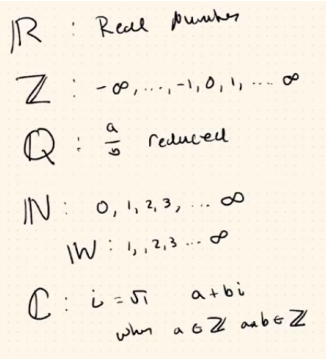 ℝ : Real numbers
ℤ : -∞, ..., -1, 0, 1, .... ∞
ℚ : a/b reduced
ℕ : 0, 1, 2, 3, ... ∞
𝕎 : 1, , 2, 3 ... ∞
ℂ : i = √1 a + bi
when a ∈ ℤ and b ∈ ℤ